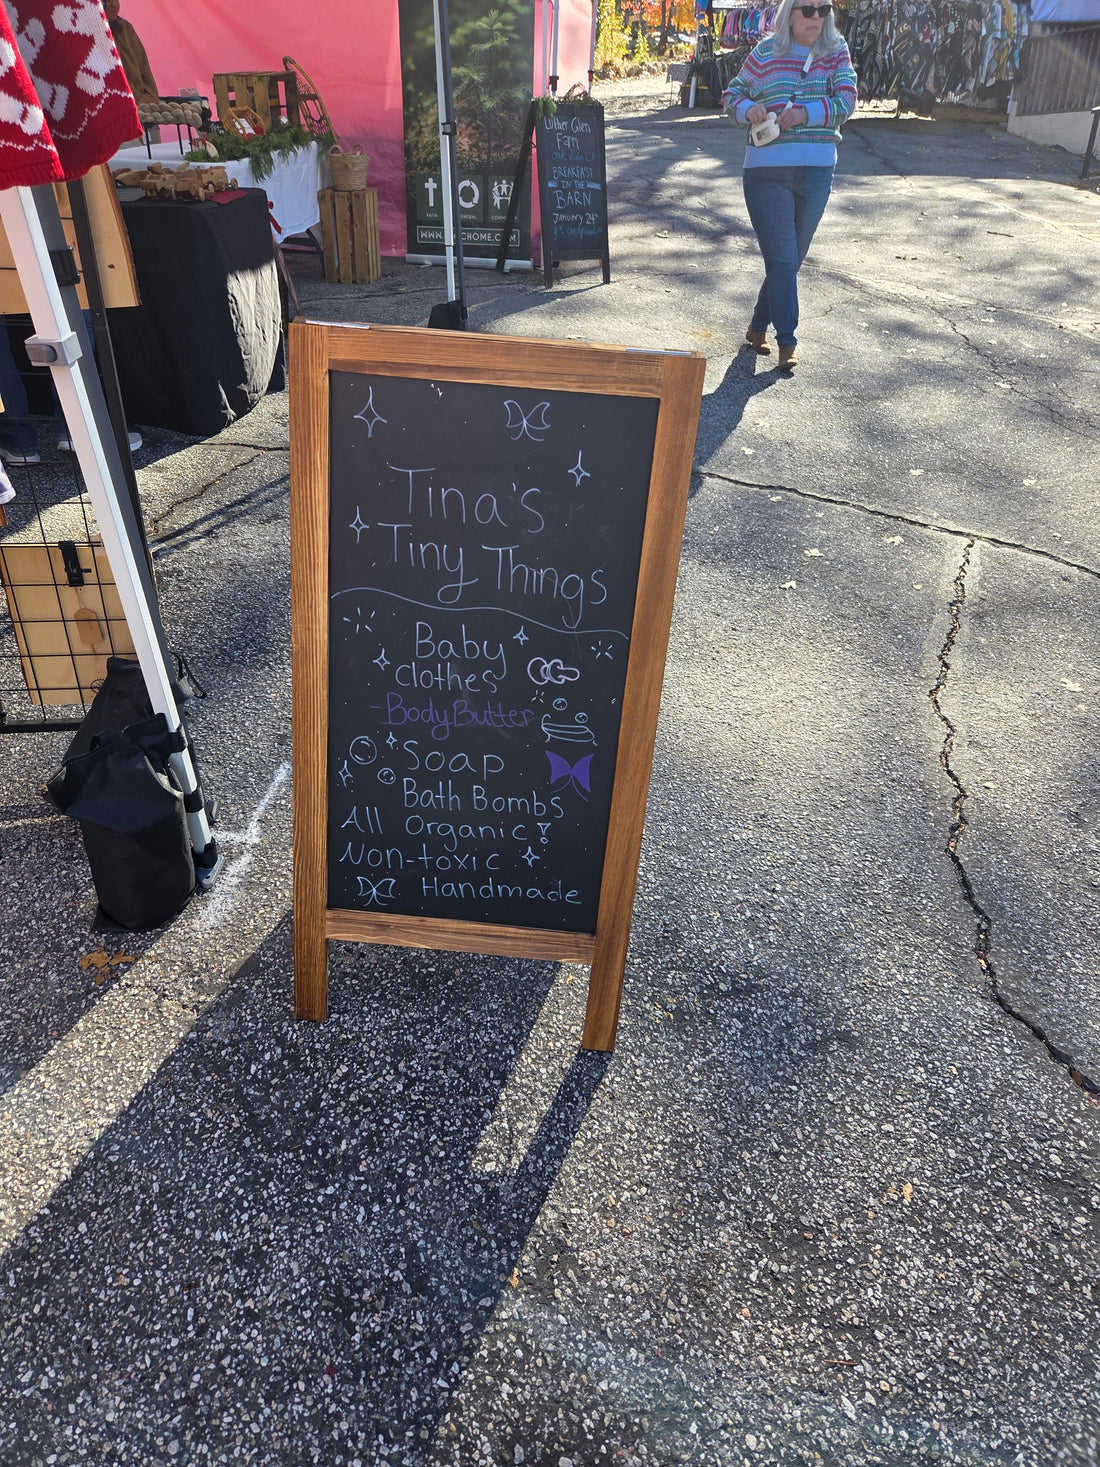 Tina's
Tiny Things
Baby
clothes
-Body Butter
Soap
Bath Bombs
All Organic!
Non-toxic
Handmade
Luther Glen
Farm
BREAKFAST
IN THE
BARN
January 24th
FAITH